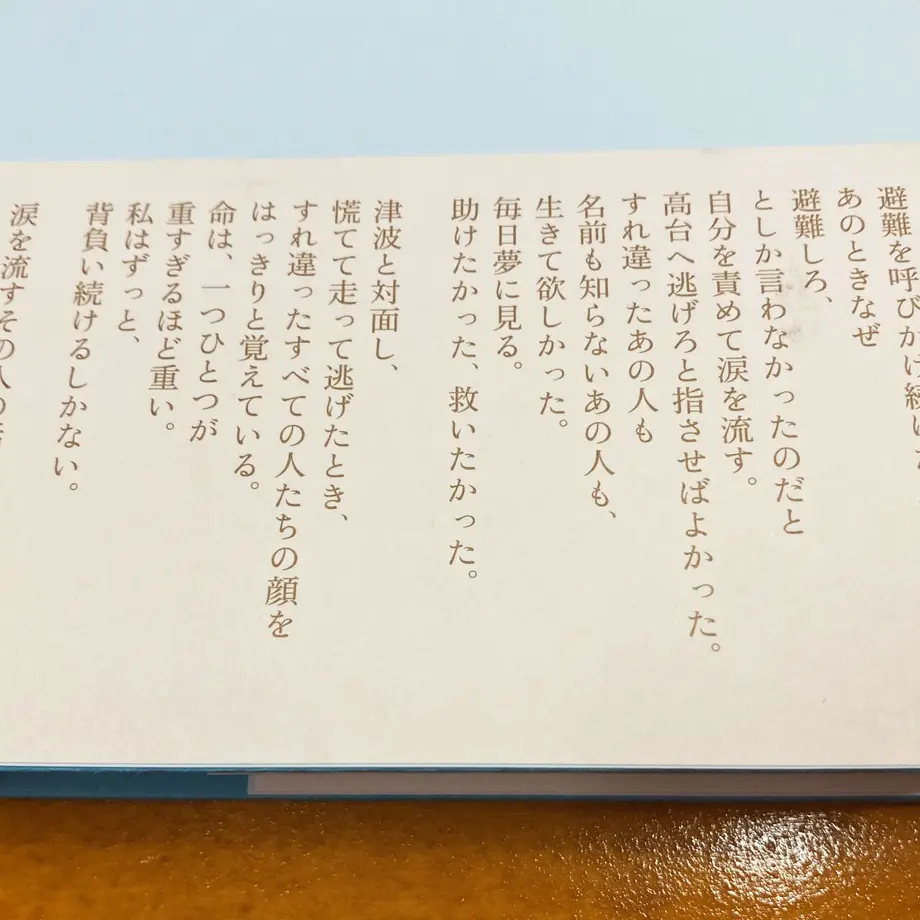 避難を呼びかけ続け
あのときなぜ
避難しろ、
としか言わなかったのだと
自分を責めて涙を流す。
高台へ逃げろと指させばよかった。
すれ違ったあの人も
名前も知らないあの人も、
生きて欲しかった。
毎日夢に見る。
助けたかった、救いたかった。
津波と対面し、
慌てて走って逃げたとき、
すれ違ったすべての人たちの顔を
はっきりと覚えている。
命は、一つひとつが
重すぎるほど重い。
私はずっと、
背負い続けるしかない。
涙を流すその人の